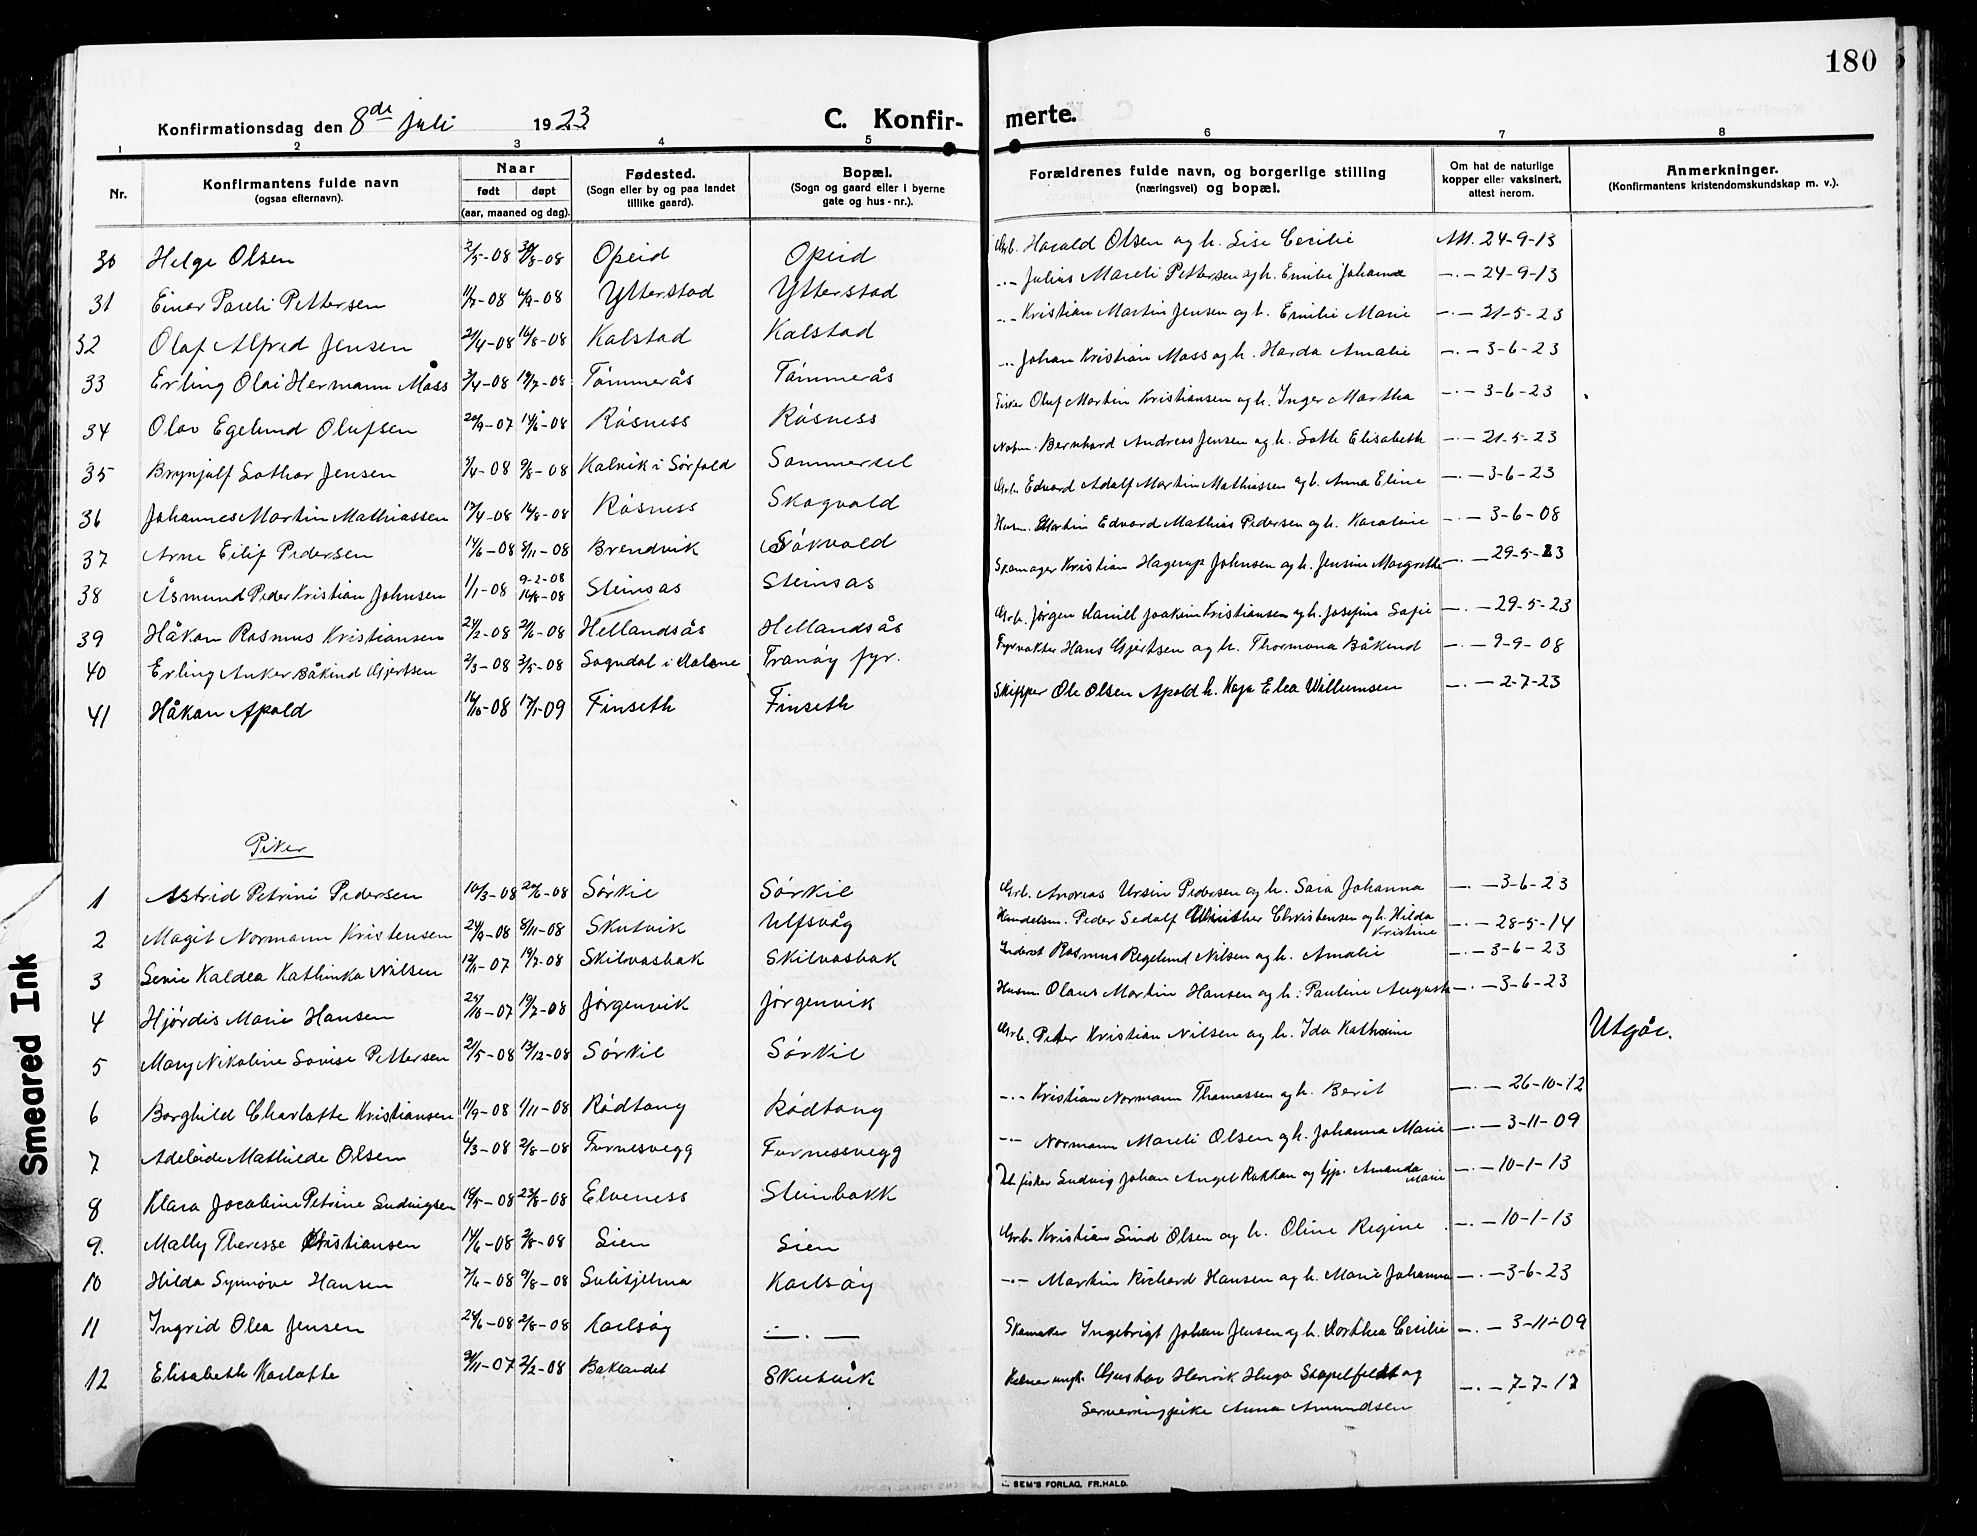 180
Konfirmationsdag den 8de juli 1923
C. Konfirmerte.
1 2 3 4 5 6 7 8
Nr.
Konfirmantens fulde navn
(ogsaa efternavn).
Naar
født døpt
(aar, maaned og dag).
Fødested.
(Sogn eller by og paa landet
tillike gaard).
Bopæl.
(Sogn og gaard eller i byerne
gate og hus-nr.).
Forældrenes fulde navn, og borgerlige stilling
(næringsvei) og bopæl.
Om hat de naturlige
kopper eller vaksinert,
attest herom.
Anmerkninger.
(Konfirmantens kristendomskundskap m. v.).
30 Helge Olsen 2/5-08 30/8-08 Opeid Opeid Grb. Harald Olsen og h. Lise Cecilie Att. 24-9-13
31 Einar Pareli Pettersen 11/7-08 6/9-08 Ytterstad Ytterstad -.- Julius Mareli Pettersen og h. Emilie Johanna -.- 24-9-13
32 Olaf Alfred Jensen 21/4-08 16/8-08 Kalstad Kalstad -.- Kristian Martin Jensen og h. Emilie Marie -.- 21-5-23
33 Erling Olai Hermann Mass 3/4-08 19/7-08 Tømmerås Tømmerås -.- Johan Kristian Mass og h. Harda Amalie -.- 3-6-23
34 Olav Egelund Olufsen 20/9-07 14/6-08 Røsness Røsness Fisker Oluf Martin Kristiansen og h. Inger Martha -.- 3-6-23
35 Brynjulf Lothar Jensen 5/4-08 9/8-08 Kalvik i Sørfold Sommersel Bernhard Andreas Jensen og h. Lotte Elisabeth -.- 21-5-23
36 Johannes Martin Mathiassen 17/4-08 16/8-08 Røsness Skogvold Grb. Edvard Adolf Martin Mathiassen og h. Anna Eline -.- 3-6-23
37 Arne Eilif Pedersen 14/6-08 8/11-08 Brendvik Såkvold Husm. Martin Edvard Mathias Pedersen og h. Karoline -.- 3-6-08
38 Åsmund Peder Kristian Johnsen 1/1-08 9-2-08 16/8-08 Steinsas Steinsas Skomager Kristian Hagerup Johnsen og h. Jensine Margrethe -.- 29-5-23
39 Håkon Rasmus Kristiansen 24/2-08 21/6-08 Hellandsås Hellandsås Grb. Jørgen Daniel Joakim Kristiansen og h. Josefine Sofie -.- 29-5-23
40 Erling Anker Båkind Gjertsen 2/3-08 3/5-08 Sogndal i Dalane Tranøy fyr. Fyrvokter Hans Gjertsen og h. Thormona Båkind -.- 9-9-08
41 Håkon Apold 16/10-08 17/1-09 Finseth Finseth Skipper Ole Olsen Apold h. Kaja Elea Willumsen -.- 2-7-23
Piker
1 Astrid Petrine Pedersen 10/3-08 20/6-08 Sørkil Sørkil Grb. Andreas Ursin Pedersen og h. Sara Johanna -.- 3-6-23
2 Magit Normann Kristensen 24/9-08 8/11-08 Skutvik Ulfsvåg Handelsm. Peder Sedolf Winther Christensen og h. Hilda Kristine -.- 28-5-14
3 Senie Kaldea Kathinka Nilsen 12/11-07 19/7-08 Skilvasbak Skilvasbak Inderst Rasmus Regelund Nilsen og h. Amalie -.- 3-6-23
4 Hjørdis Marie Hansen 25/10-07 19/7-08 Jørgenvik Jørgenvik Husm. Olaus Martin Hansen og h. Pauline Augusta -.- 3-6-23
5 Mary Nikoline Lovise Pettersen 21/5-08 13/12-08 Sørkil Sørkil Grb. Peter Kristian Nilsen og h. Ida Kathrine Utgår.
6 Borghild Charlotte Kristiansen 11/9-08 1/11-08 Rødtang Rødtang -.- Kristian Normann Thomassen og h. Berit -.- 26-10-12
7 Adelaide Mathilde Olsen 6/3-08 2/8-08 Furnesvegg Furnessvegg -.- Normann Mareli Olsen og h. Johanna Marie -.- 3-11-09
8 Klara Jocobine Petrine Ludvigsen 19/5-08 23/8-08 Elveness Steinbakk fisker Ludvig Johan Angel Rakkan og tjp. Amanda Marie -.- 10-1-13
9. Mally Theresse Kristiansen 14/6-08 2/8-08 Lien Lien Grb. Kristian Sind Olsen og h. Oline Regine -.- 10-1-13
10 Hilda Synnøve Hansen 7/6-08 9/8-08 Sulitjelma Karlsøy -.- Martin Richard Hansen og h. Marie Johanna -.- 3-6-23
11 Ingrid Olea Jensen 24/6-08 2/8-08 Karlsøy -.- Skomaker Ingebrigt Johan Jensen og h. Dorthea Cecilie -.- 3-11-09
12 Elisabeth Karlotte 21/11-07 2/2-08 Baklandet Skutvik Gustav Henrik Hugo Stapelfeldt og
Serveringspike Anna Amundsen -.- 7-7-17
SEM'S FORLAG, FR.HALD.
Smeared Ink